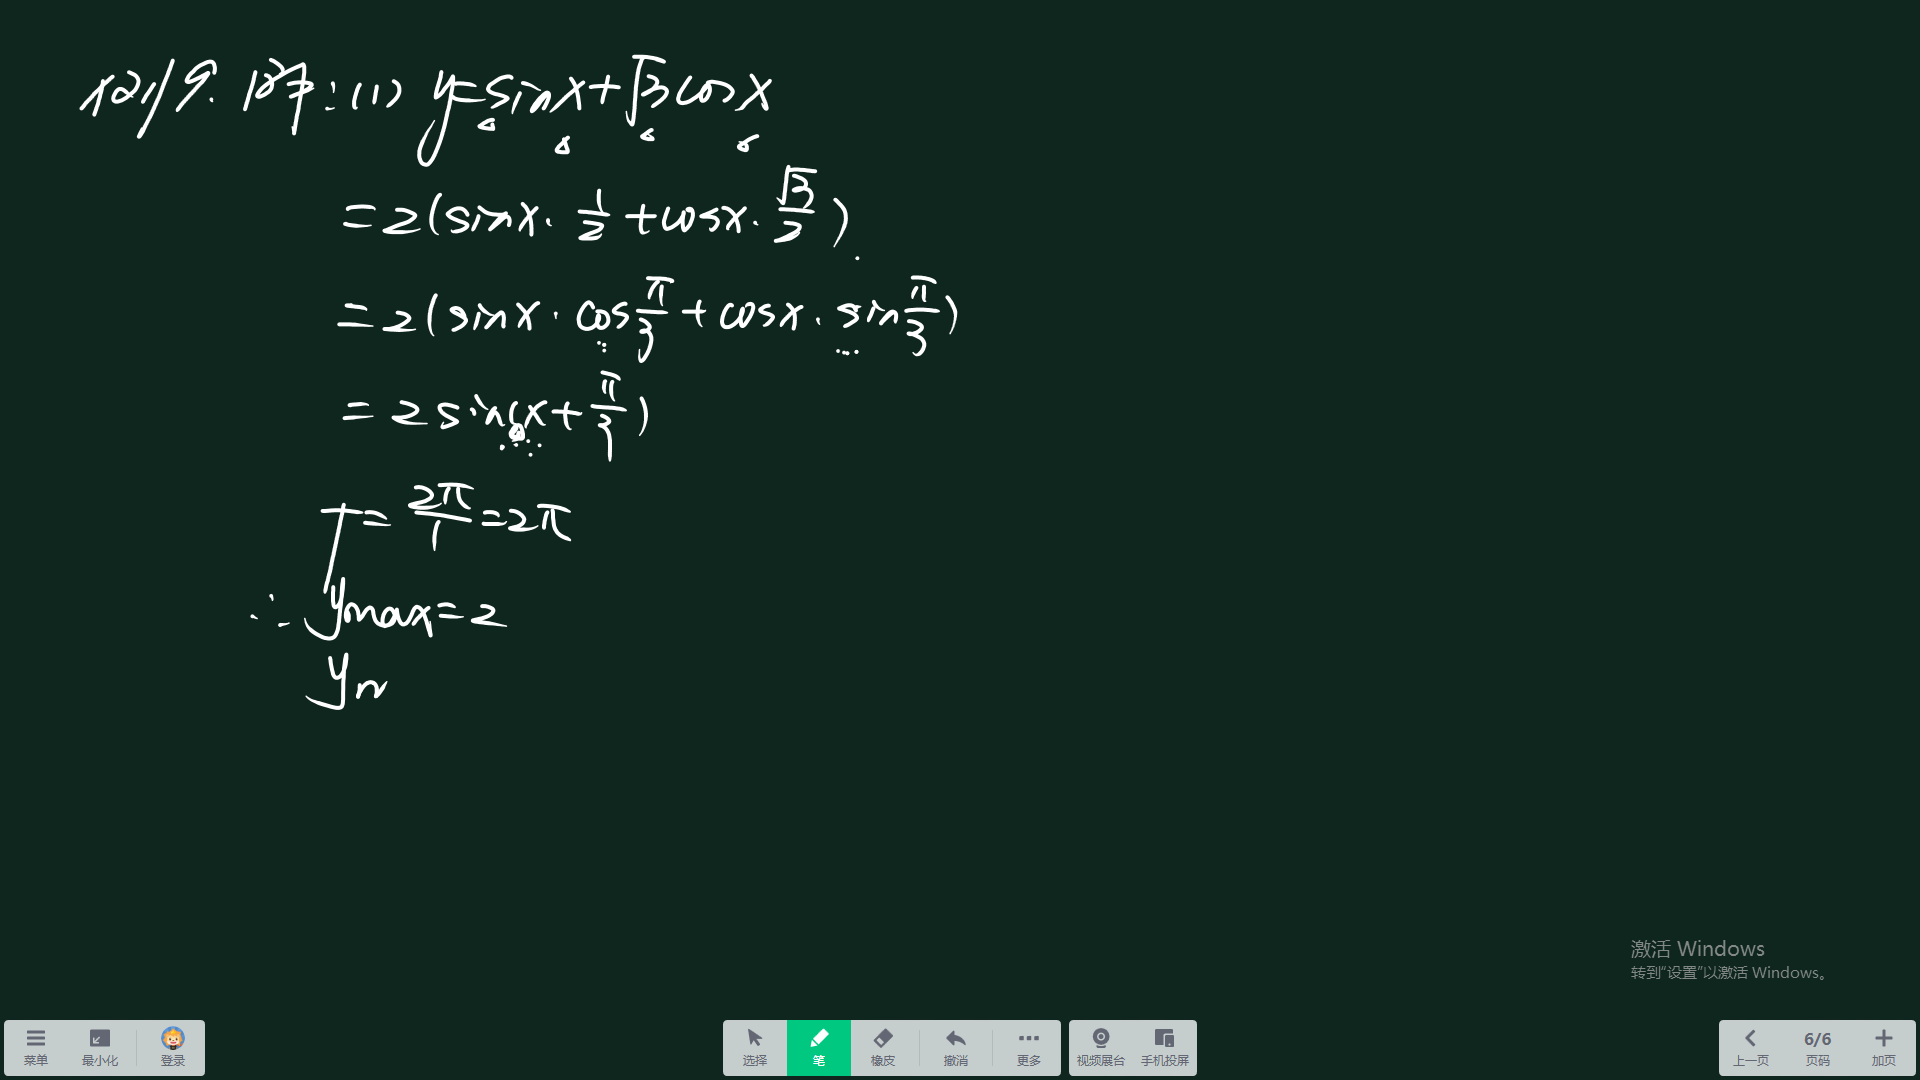 12/9. 解:(1) y=sinx+√3cosx
=2(sinx·1/2+cosx·√3/2)
=2(sinx·cosπ/3+cosx·sinπ/3)
=2sin(x+π/3)
T=2π/1=2π
∴ymax=2
yn
激活 Windows
转到“设置”以激活 Windows。
菜单 最小化 登录 选择 笔 橡皮 撤消 更多 视频展台 手机投屏 上一页 6/6 页码 加页